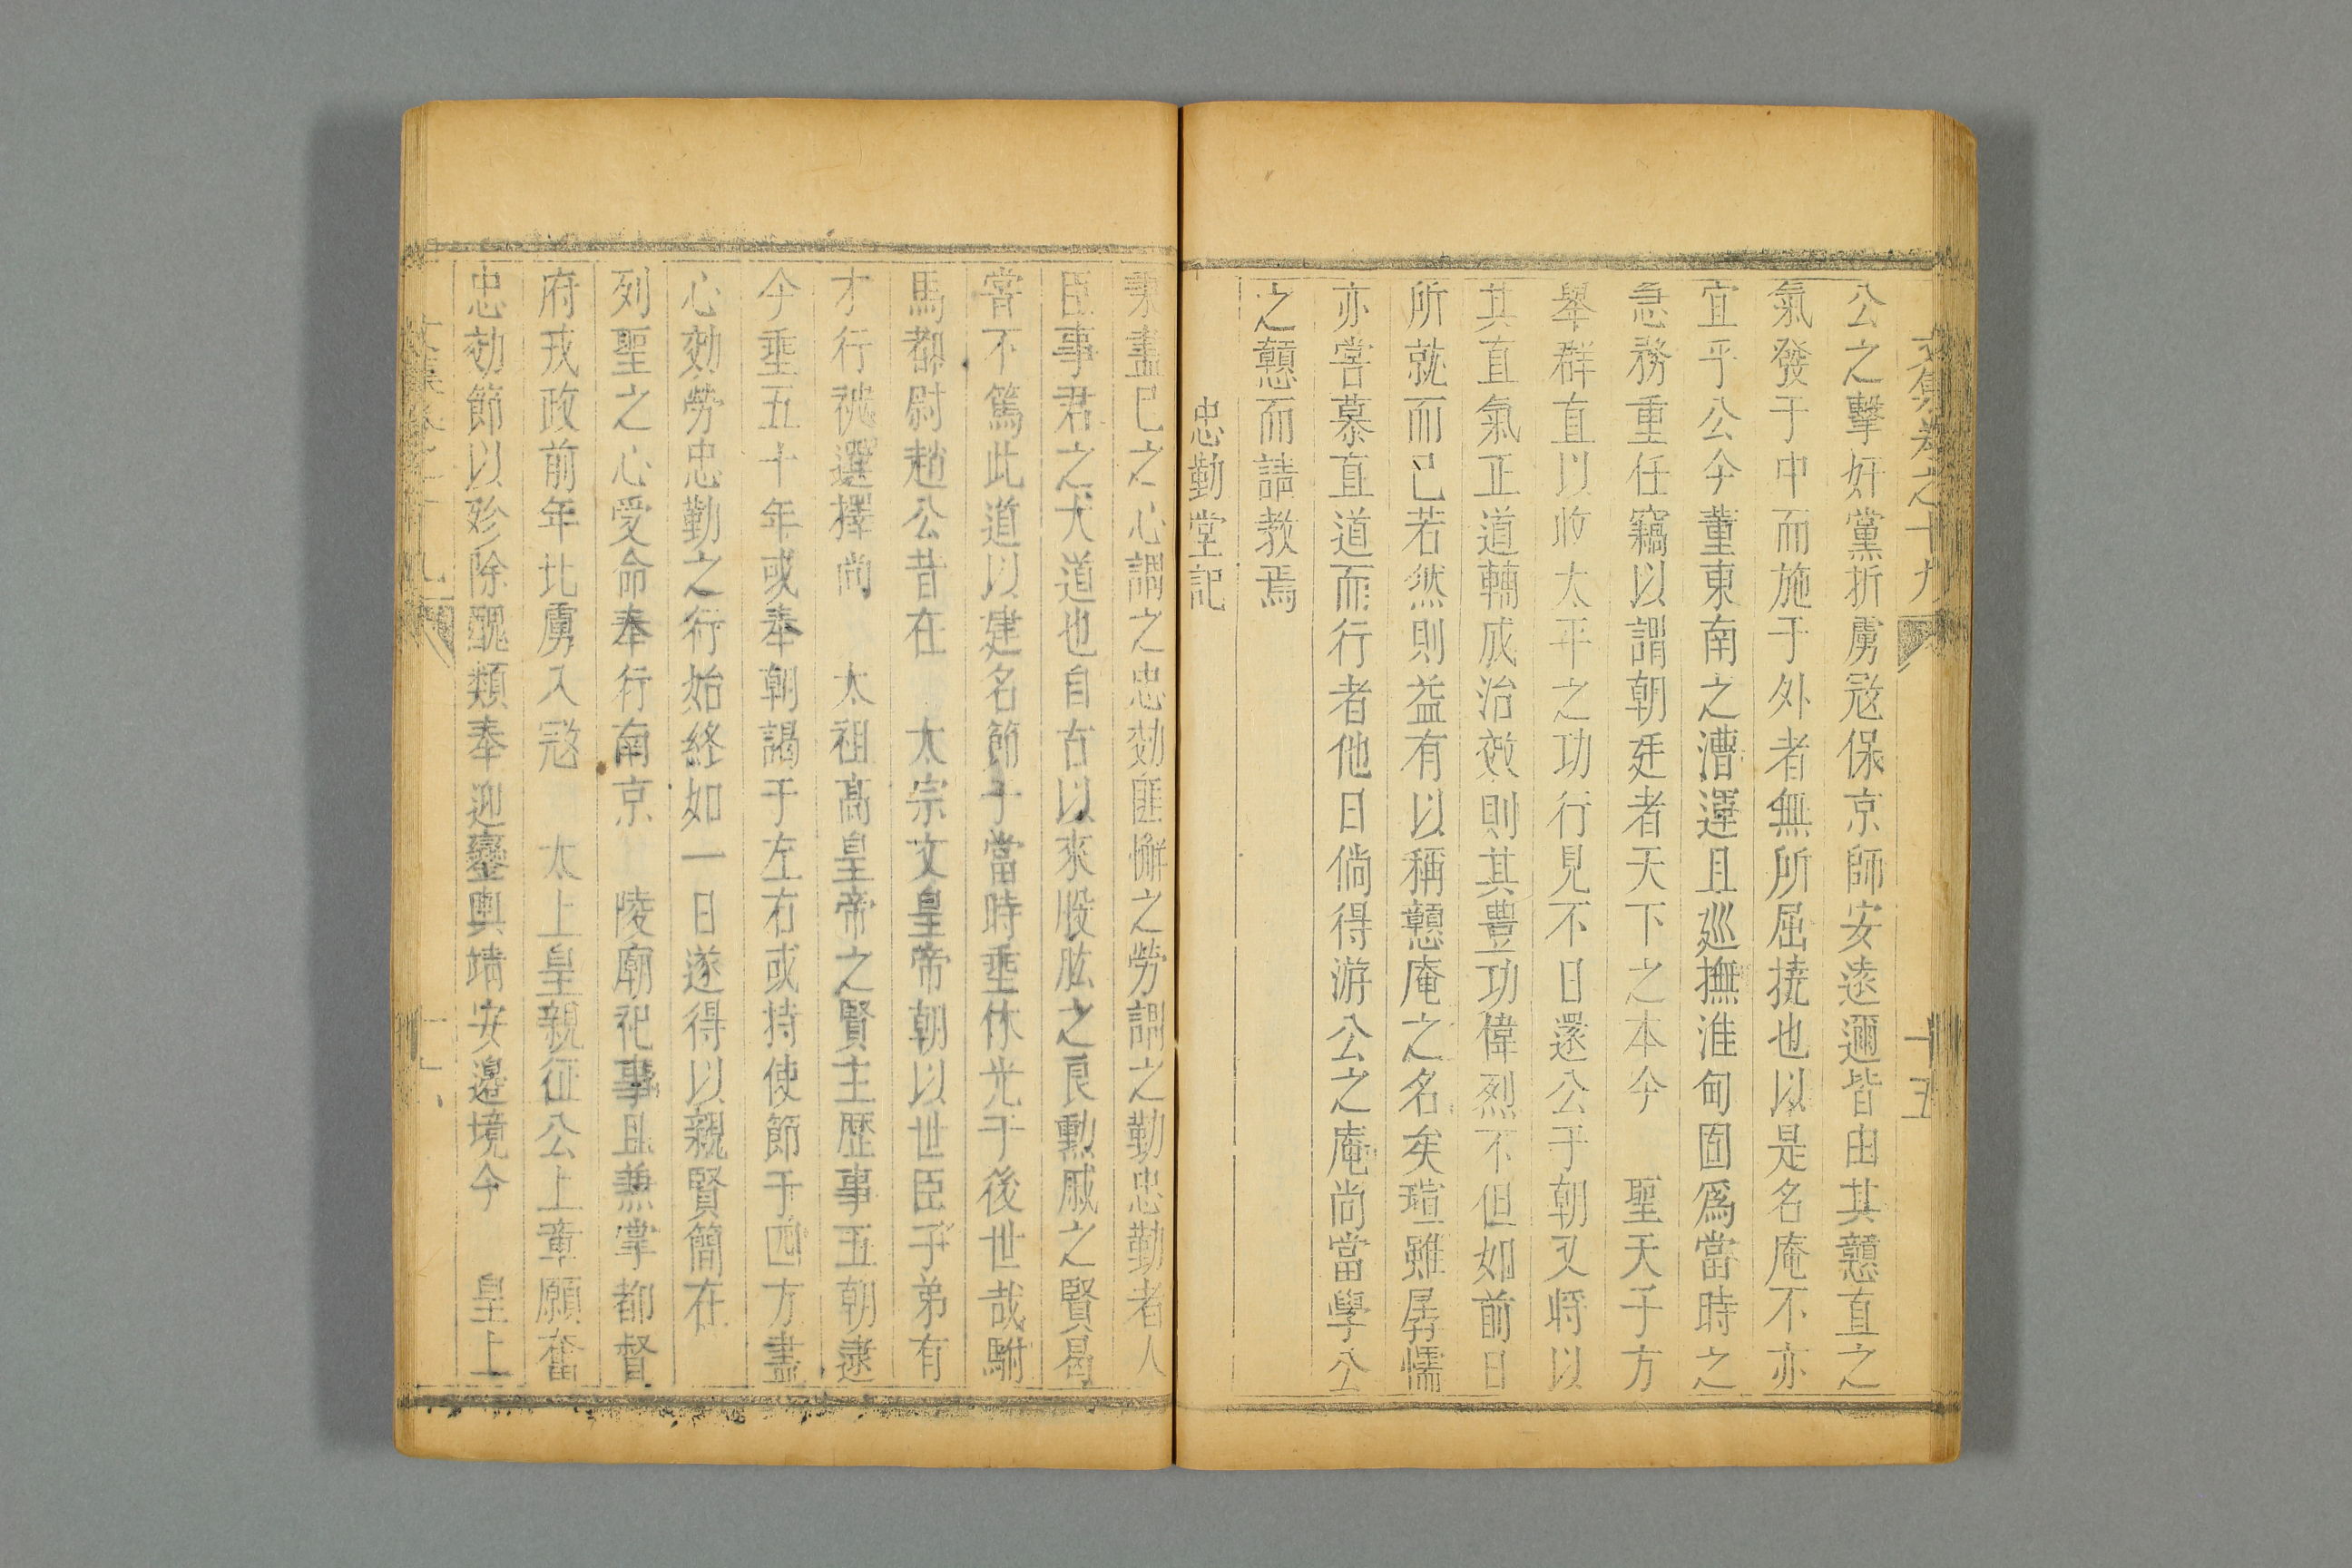 文集卷之十九
十五
公之擊奸黨折虜㓂保京師安遠邇皆由其戇直之
氣發于中而施于外者無所屈撓也以是名庵不亦
宜乎公今董東南之漕運且廵撫淮甸固爲當時之
急務重任竊以謂朝廷者天下之本今 聖天子方
舉群直以收太平之功行見不日還公于朝又將以
其直氣正道輔成治效則其豊功偉烈不但如前日
所就而已若然則益有以稱戇庵之名矣瑄雖孱懦
亦嘗慕直道而行者他日倘得游公之庵尚當學公
之戇而請教焉
忠勤堂記
秉盡已之心謂之忠効匪懈之勞謂之勤忠勤者人
臣事君之大道也自古以來股肱之良勲戚之賢曷
嘗不篤此道以建名節于當時垂休光于後世哉駙
馬都尉趙公昔在 太宗文皇帝朝以世臣子弟有
才行被選擇尚 太祖高皇帝之賢主歷事五朝逮
今垂五十年或奉朝謁于左右或持使節于四方盡
心効勞忠勤之行始終如一日遂得以親賢簡在
列聖之心受命奉行南京 陵廟祀事且兼掌都督
府戎政前年北虜入㓂 太上皇親征公上章願奮
忠効節以殄除醜類奉迎鑾輿靖安邊境今 皇上